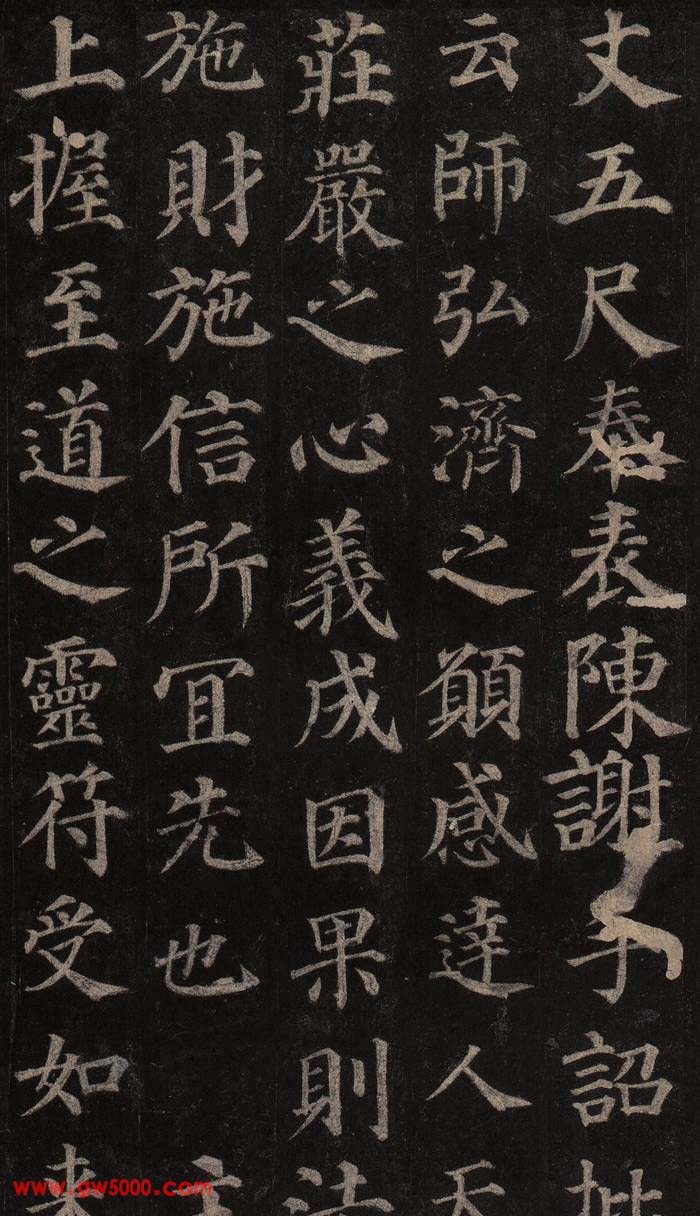 丈五尺奉表陳謝手詔批
云師弘濟之願感達人天
莊嚴之心義成因果則法
施財施信所宜先也 主
上握至道之靈符受如来
www.gw5000.com